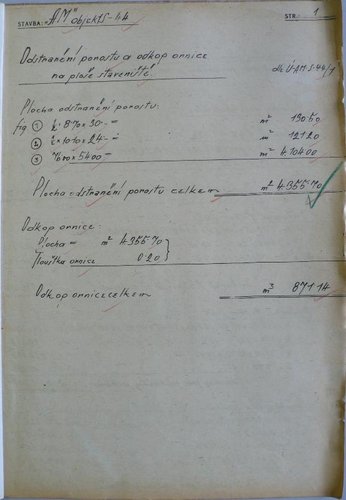 STAVBA: "AM" objekt S-44 STR. 1
Odstranění porostu a odkop ornice
na ploše staveniště dle V-AM-S-44/1
Plocha odstranění porostu:
fig 1 ½· 8 70 × 30·- = m² 130 50
2 ½ × 10 10 × 24·- = m² 121 20
3 76 00 × 54 00 = m² 4.104 00
Plocha odstranění porostu celkem m² 4.355 70
Odkop ornice:
Plocha = m² 4.355 70
Tloušťka ornice 0 20
Odkop ornice celkem m³ 871 14